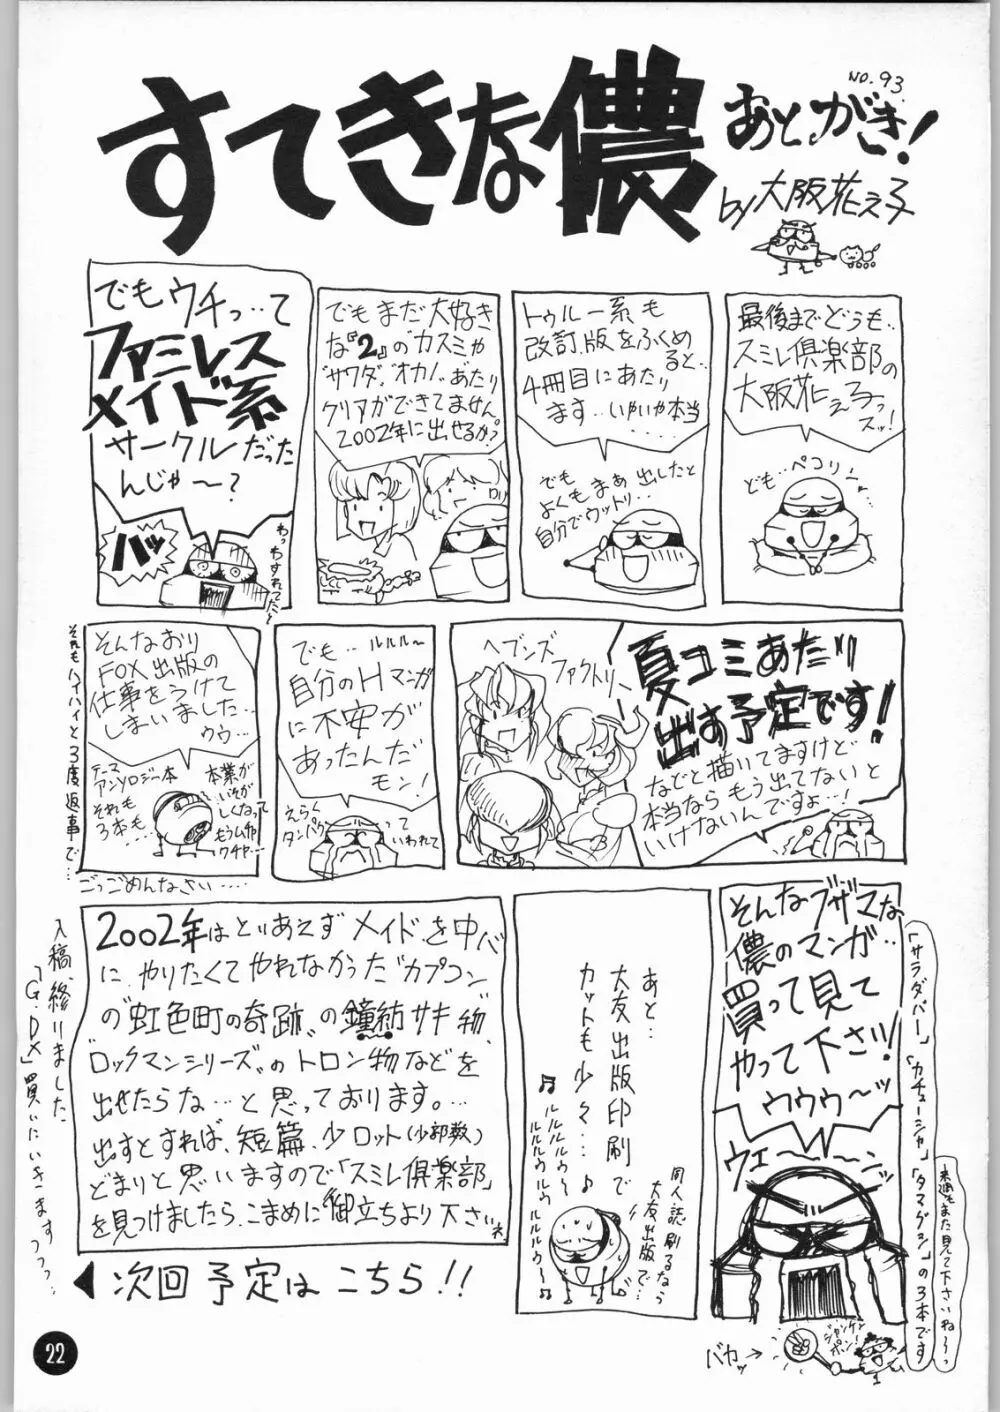 すてきな儂
NO.93.
あとがき!
by 大阪花え子
最後までどうも..
スミレ倶楽部の
大阪花え子っ
スッ!
ども..ペコリン
トゥルー系も
改訂版をふくめ
ると...
4冊目にあたり
ます..いやいや本当
でも
よくもまぁ出したと
自分でウットリ...
でもまだ大好き
な『2』のカスミや
"サワダ""オカノ"あたり
クリアができてません
2002年に出せるか?
でもウチっ...て
ファミレス
メイド系
サークルだった
んじゃ〜?
ハッ
わっわすれてた〜
ヘブンズ
ファクトリー
夏コミあたり
出す予定です!
などと描いてますけど
本当ならもう出てないと
いけないんですょ...!
でも..ルルル〜
自分のHマンガ
に不安が
あったんだ
モン!
えらく
タンパク
って
いわれて
そんなおり
FOX出版の
仕事をうけて
しまいました...
ウウ...
テーマ
アンソロジー本
それも
3本も...
本業が
いそが
しくなって
もうムチャ
ウチャ...
それもハイハイと3度返事で...
ごっごめんなさい....
そんなブザマな
儂のマンガ..
買って見て
やって下さい!
ウウウ〜ッ
ウエーーン
「サラダバー」「カチューシャ」「タマグラン」の3本です
来週もまた見て下さいね〜っ
ジャンケン
ポン!
バカッ→
あと...
大友出版印刷で
カットも少々...♪
♬ルルルル〜
ルルルルウルウル
ルルルウ〜♬
同人誌刷るなら
大友出版で...
2002年はとりあえずメイドを中心
にやりたくてやれなかった"カプコン"
の"虹色町の奇跡"の鐘紡サキ物、
"ロックマンシリーズ"のトロン物などを
出せたらな...と思っております。...
出すとすれば、短篇、少ロット(少部数)
どまりと思いますので「スミレ倶楽部」
を見つけましたら、こまめに御立ちより下さいネ
◀次回予定はこちら!!
入稿、終りました
「G.DX」買いにいきますっっっ...
22